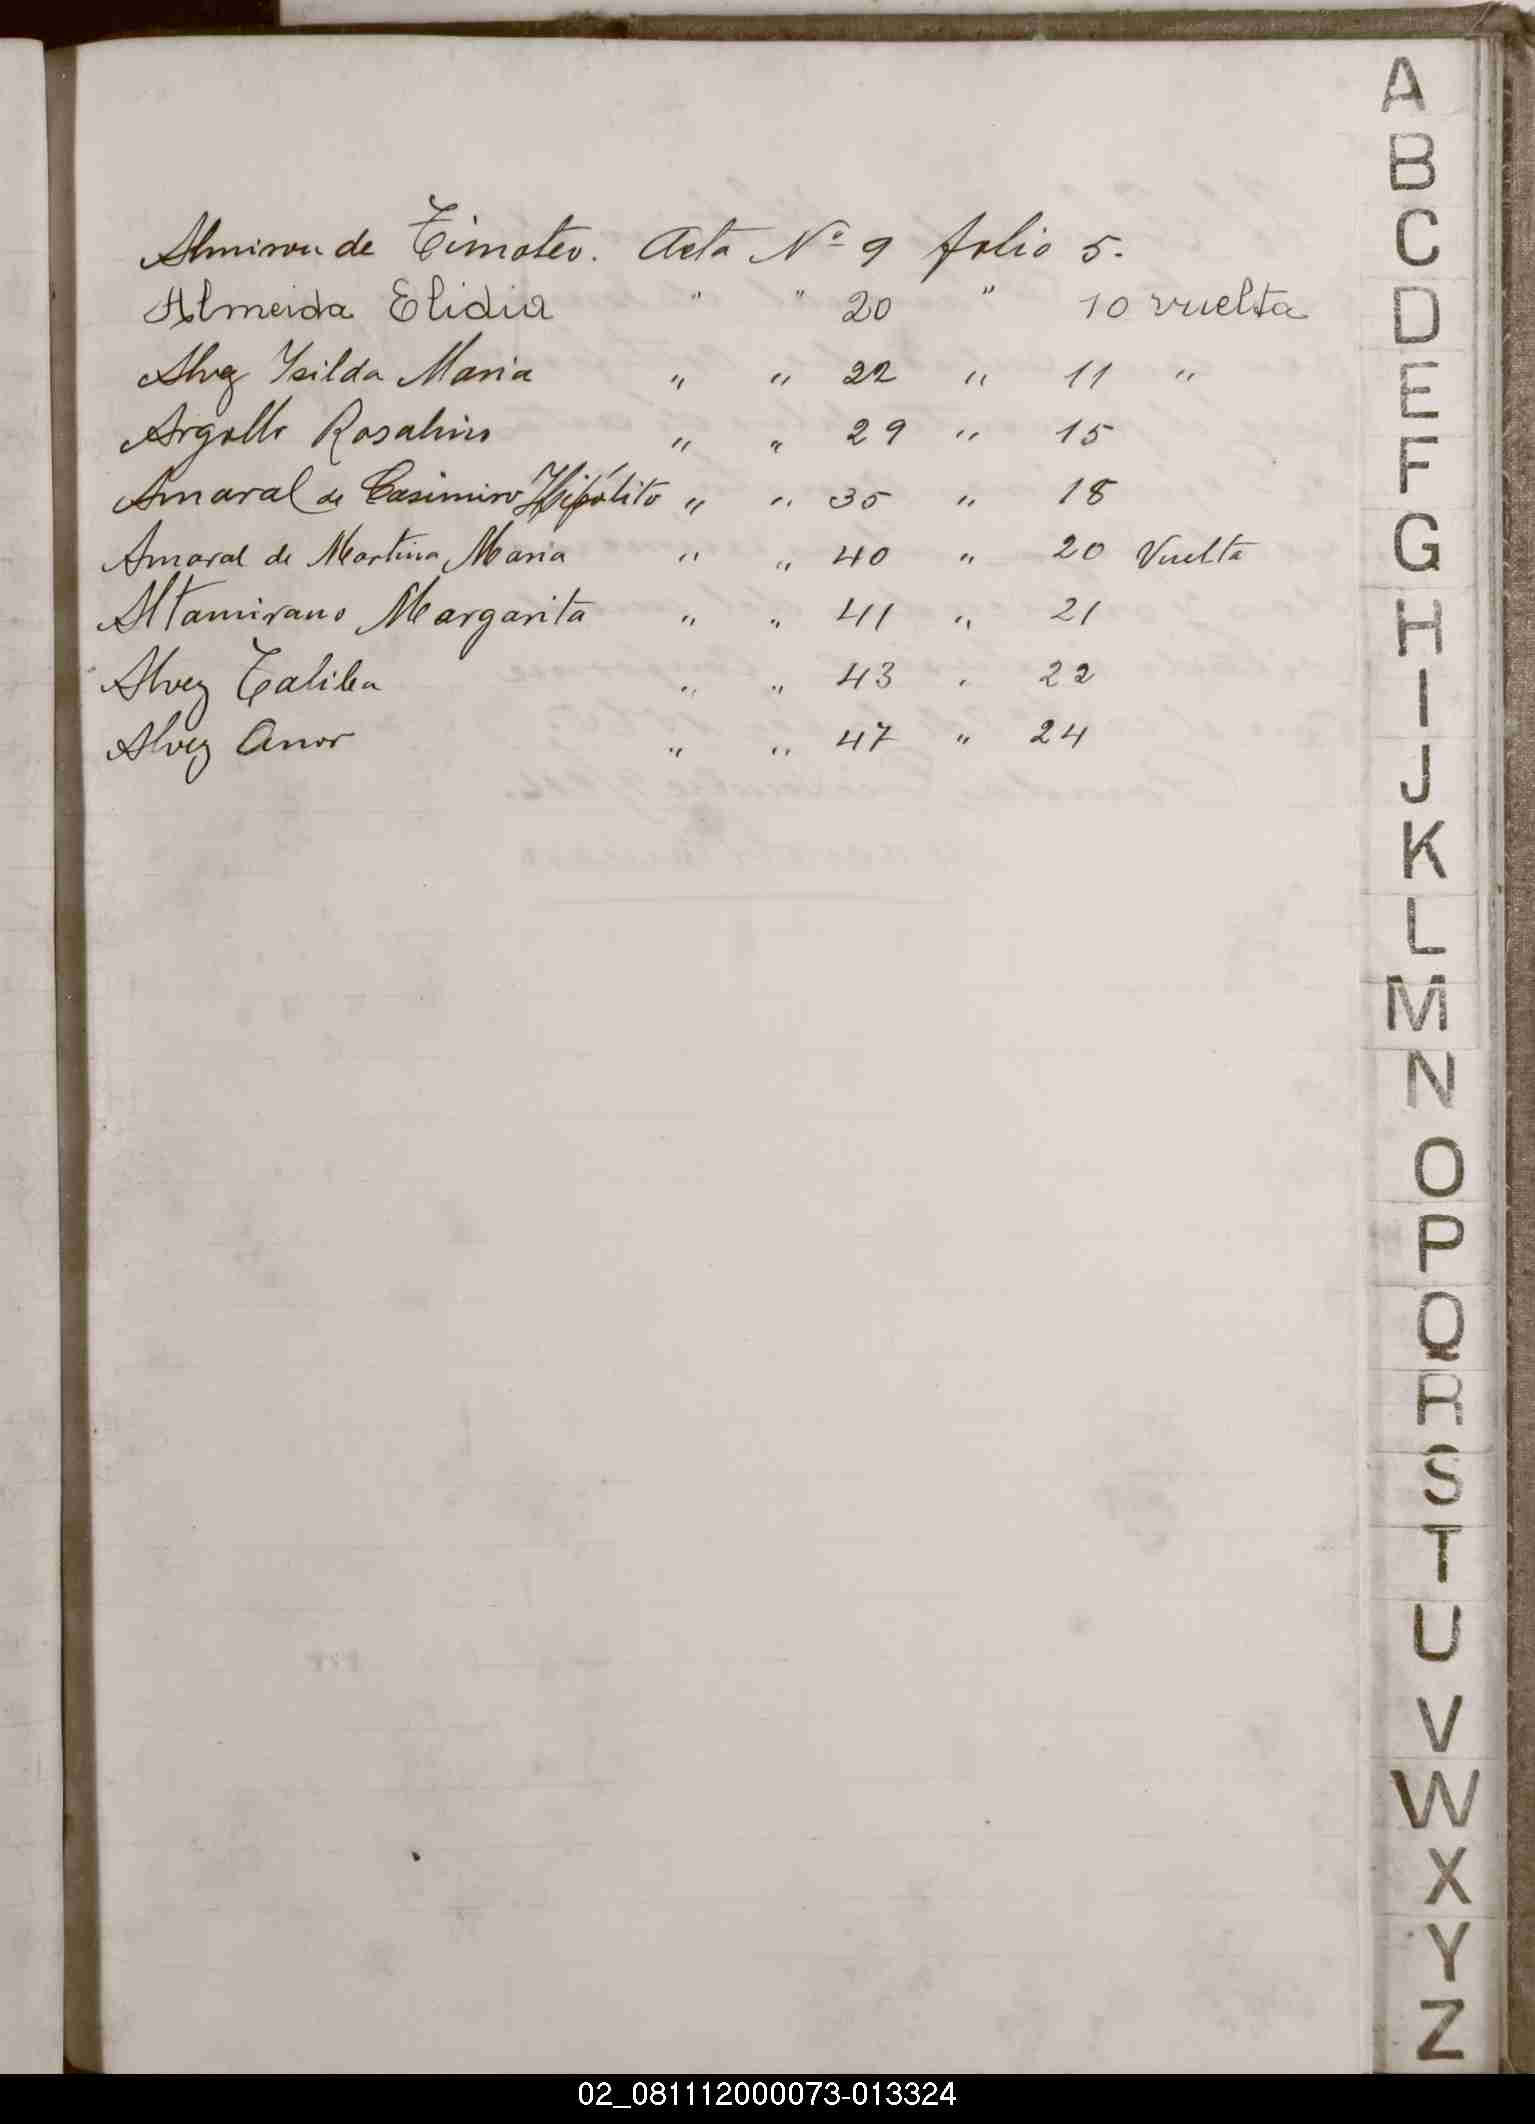 Almiron de Timoteo. Acta Nº 9 folio 5.
Almeida Elidia " " 20 " 10 vuelta
Alvez Ysilda Maria " " 22 " 11 "
Argollo Rosalino " " 29 " 15
Amaral de Casimiro Hipólito " " 35 " 18
Amaral de Martina Maria " " 40 " 20 Vuelta
Altamirano Margarita " " 41 " 21
Alvez " " 43 " 22
Alvez Anor " " 47 " 24
A
B
C
D
E
F
G
H
I
J
K
L
M
N
O
P
Q
R
S
T
U
V
W
X
Y
Z
02_081112000073-013324